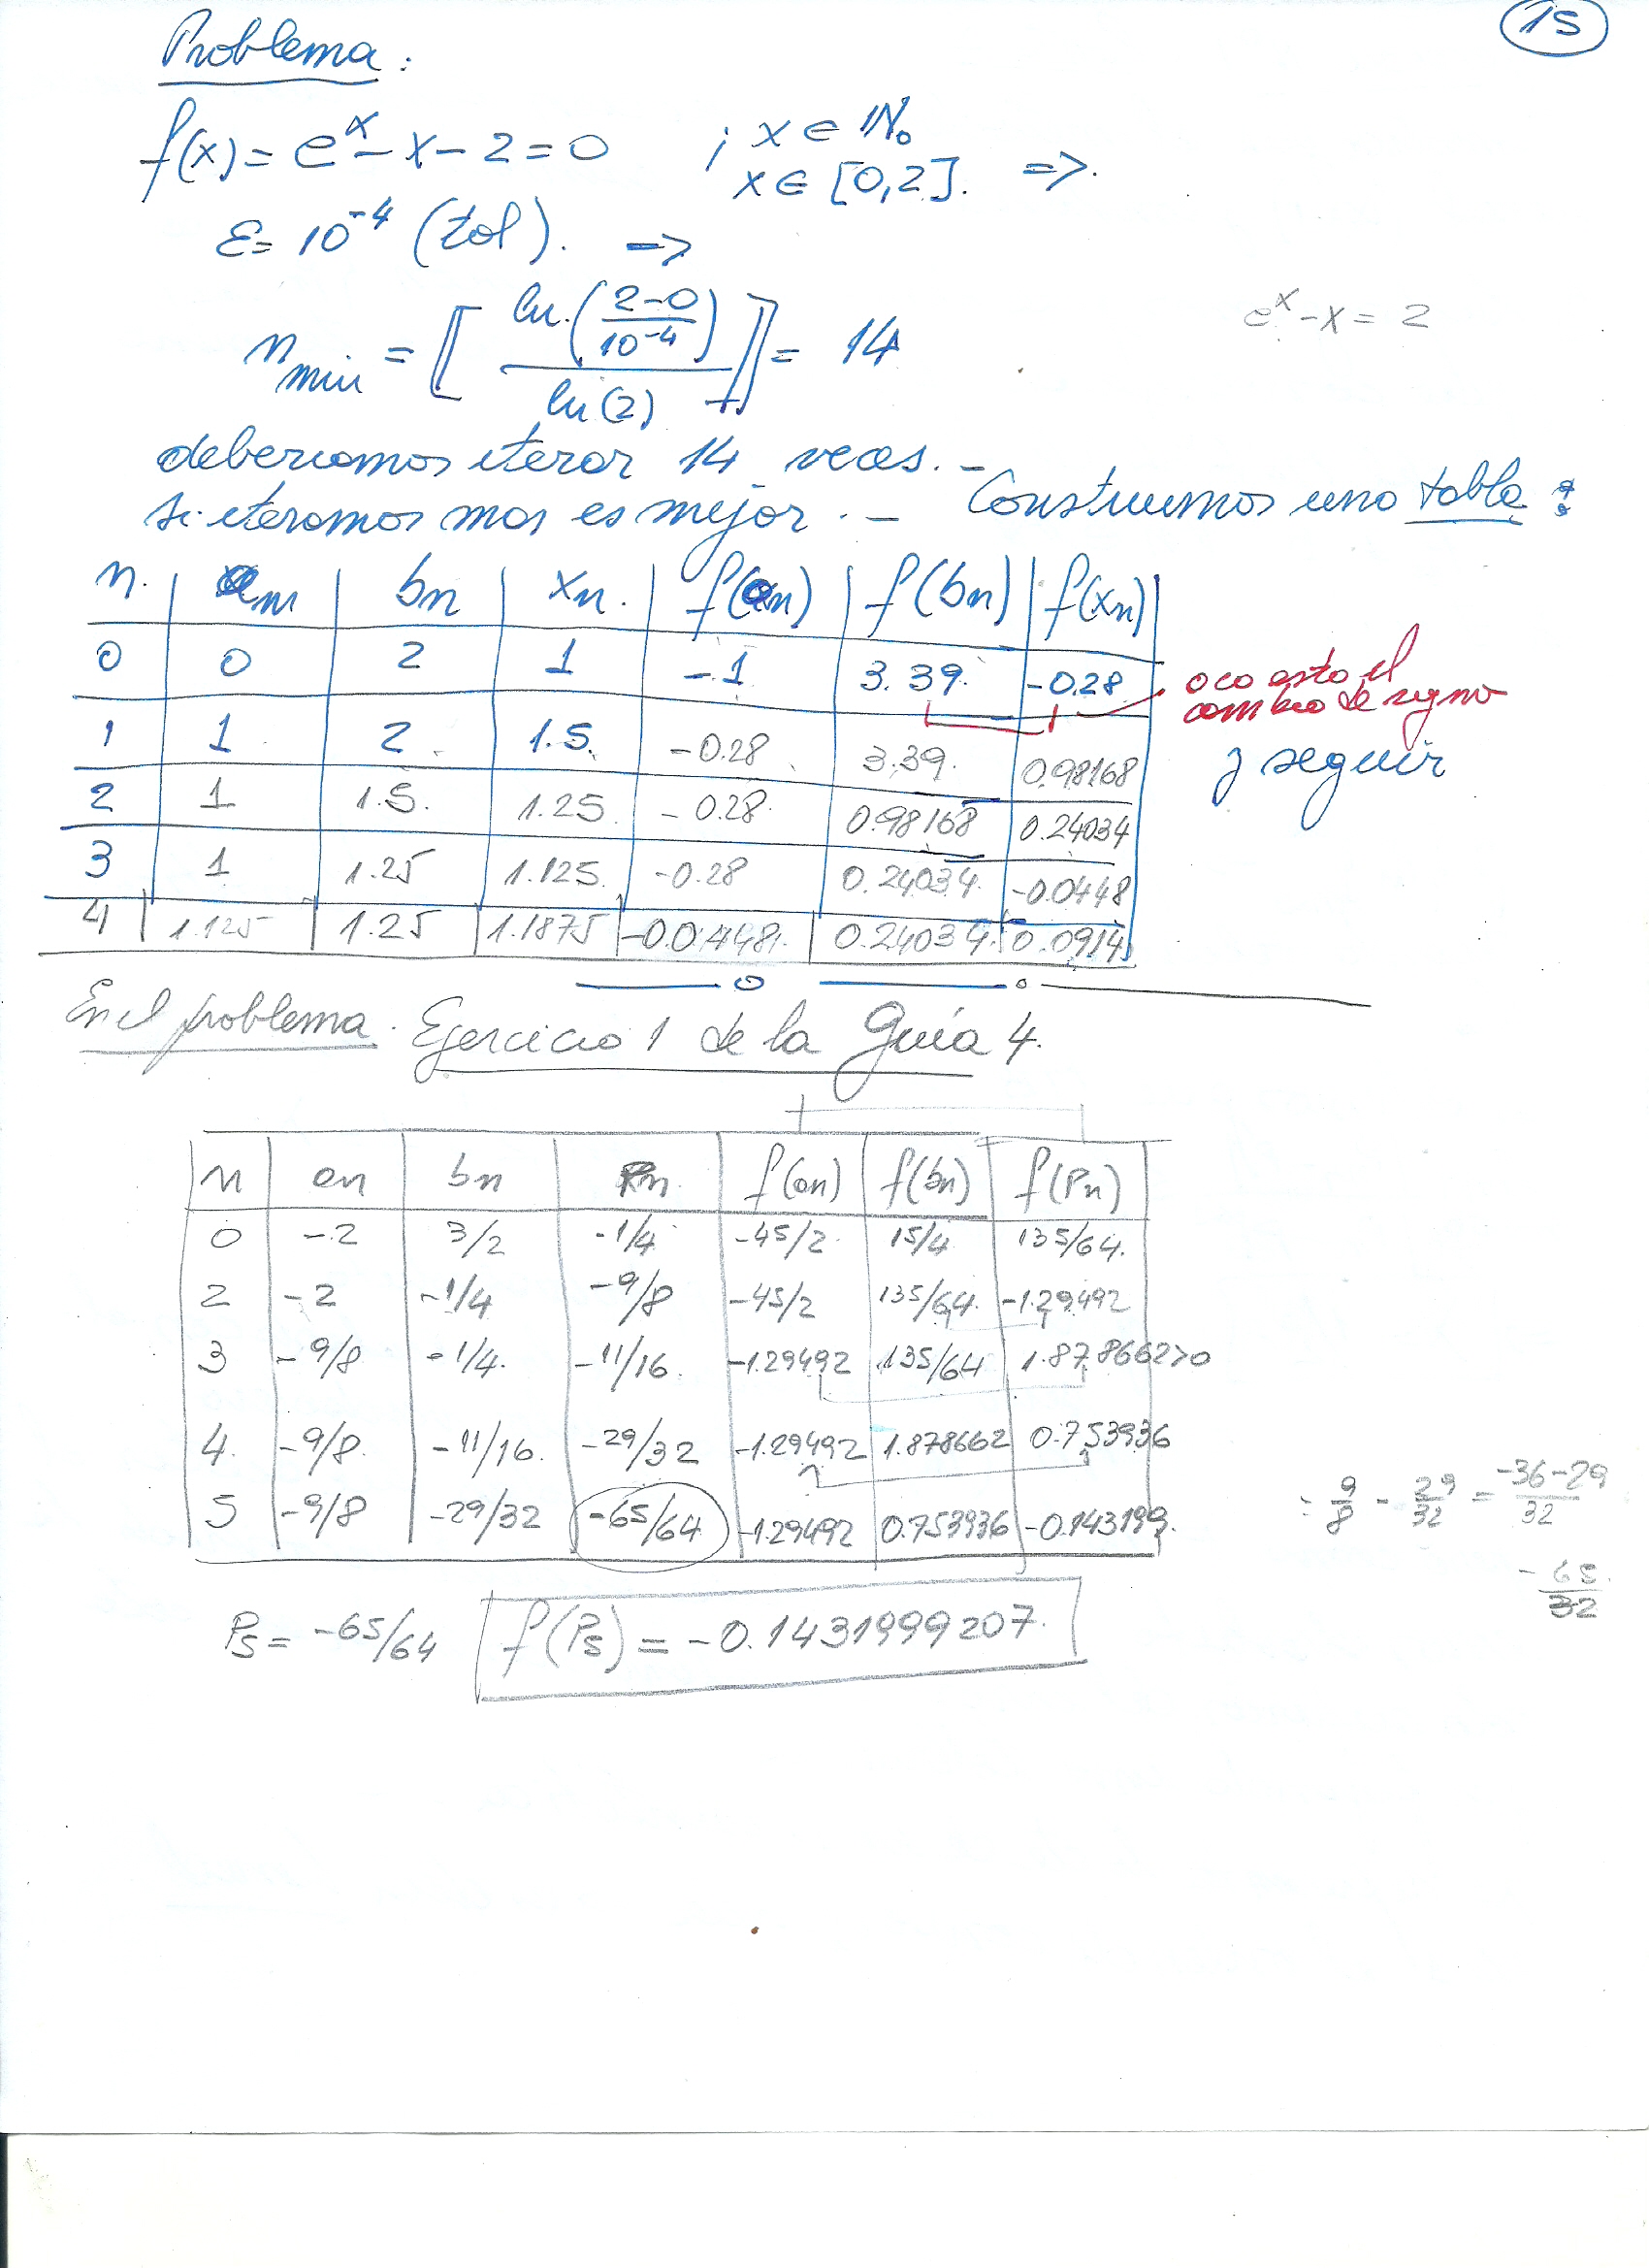 15
Problema:
f(x) = e^x - x - 2 = 0 ; x ∈ ℕ₀
x ∈ [0,2]. =>.
ε = 10^-4 (tol). ->
e^x - x = 2
n_min = [[ ln.((2-0)/10^-4) / ln(2) ]] = 14
deberiamos iterar 14 veces.-
si iteramos mas es mejor.- Construimos una tabla:
n. | an | bn | xn. | f(an) | f(bn) | f(xn)
0 | 0 | 2 | 1 | -1 | 3.39. | -0.28
aca esta el
cambio de signo
1 | 1 | 2 | 1.5. | -0.28 | 3.39. | 0.98168
y seguir
2 | 1 | 1.5. | 1.25. | -0.28. | 0.98168 | 0.24034
3 | 1 | 1.25 | 1.125. | -0.28 | 0.24034. | -0.0448
4 | 1.125 | 1.25 | 1.1875 | -0.0448. | 0.24034. | 0.0914
En el problema. Ejercicio 1 de la Guía 4.
n | an | bn | Pn. | f(an) | f(bn) | f(Pn)
0 | -2 | 3/2 | -1/4 | -45/2 | 15/4 | 135/64.
2 | -2 | -1/4 | -9/8 | -45/2 | 135/64. | -1.29492
3 | -9/8 | -1/4. | -11/16. | -1.29492 | 135/64 | 1.878662>0
4. | -9/8. | -11/16. | -29/32 | -1.29492 | 1.878662 | 0.753936
5 | -9/8 | -29/32 | -65/64 | -1.29492 | 0.753936 | -0.143199.
= 9/8 - 29/32 = (-36-29)/32
-65/32
P5 = -65/64 f(P5) = -0.1431999207.